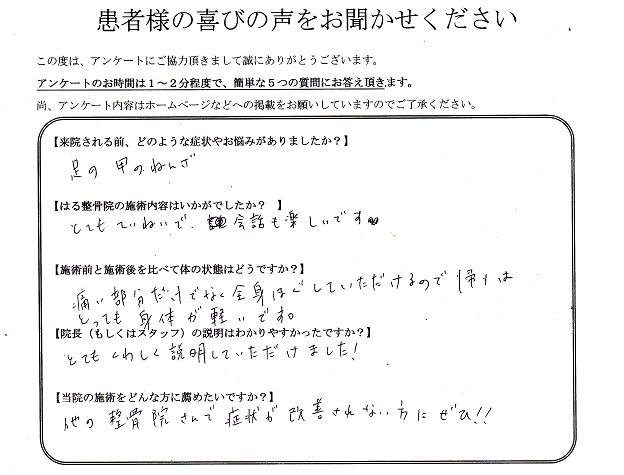 患者様の喜びの声をお聞かせください
この度は、アンケートにご協力頂きまして誠にありがとうございます。
アンケートのお時間は１～２分程度で、簡単な５つの質問にお答え頂きます。
尚、アンケート内容はホームページなどへの掲載をお願いしていますのでご了承ください。
【来院される前、どのような症状やお悩みがありましたか？】
足の甲のねんざ
【はる整骨院の施術内容はいかがでしたか？　】
とてもていねいで、会話も楽しいです
【施術前と施術後を比べて体の状態はどうですか？】
痛い部分だけでなく全身ほぐしていただけるので帰りは
とっても身体が軽いです。
【院長（もしくはスタッフ）の説明はわかりやすかったですか？】
とてもくわしく説明していただけました！
【当院の施術をどんな方に薦めたいですか？】
他の整骨院さんで症状が改善されない方にぜひ!!